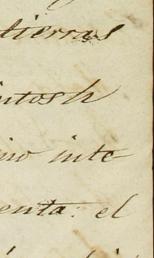 tierras
intosh
ino inte
enta. el